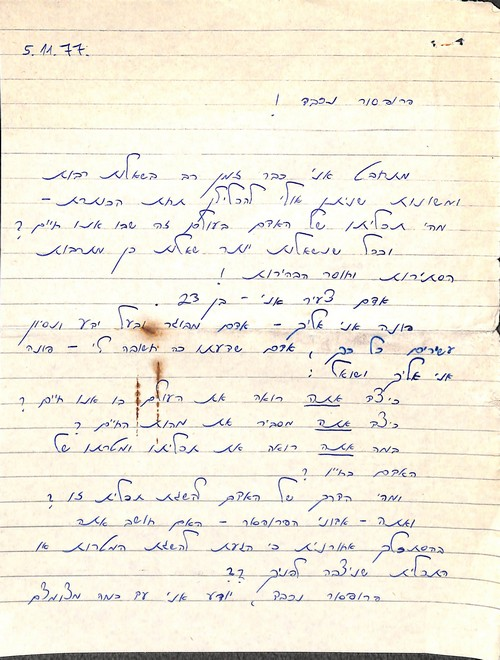 5.11.77.
פרופסור נכבד !
מתחבט אני כבר זמן רב בשאלות רבות
ומשונות שניתן אולי להכלילן תחת הכותרת -
מהי תכליתו של האדם בעולם זה שבו אנו חיים ?
וככל שנשאלות יותר שאלות כן מתרבות
הסתירות וחוסר הבהירות !
אדם צעיר אני - בן 23 .
פונה אני אליך - אדם מבוגר ובעל ידע ונסיון
עשירים כל כך , אדם שדעתו כה חשובה לי - פונה
אני אליך ושואל :
כיצד אתה רואה את העולם בו אנו חיים ?
כיצד אתה מסביר את מהות החיים ?
במה אתה רואה את תכליתו ומטרתו של
האדם בחייו ?
ומהי הדרך של האדם להשגת תכלית זו ?
ואתה - אדוני הפרופסור - האם חושב אתה
בהסתכלך אחורנית כי הגעת להשגת המטרות או
התכלית שניצבה לפניך ??
פרופסור נכבד , יודע אני עד כמה מצומצם